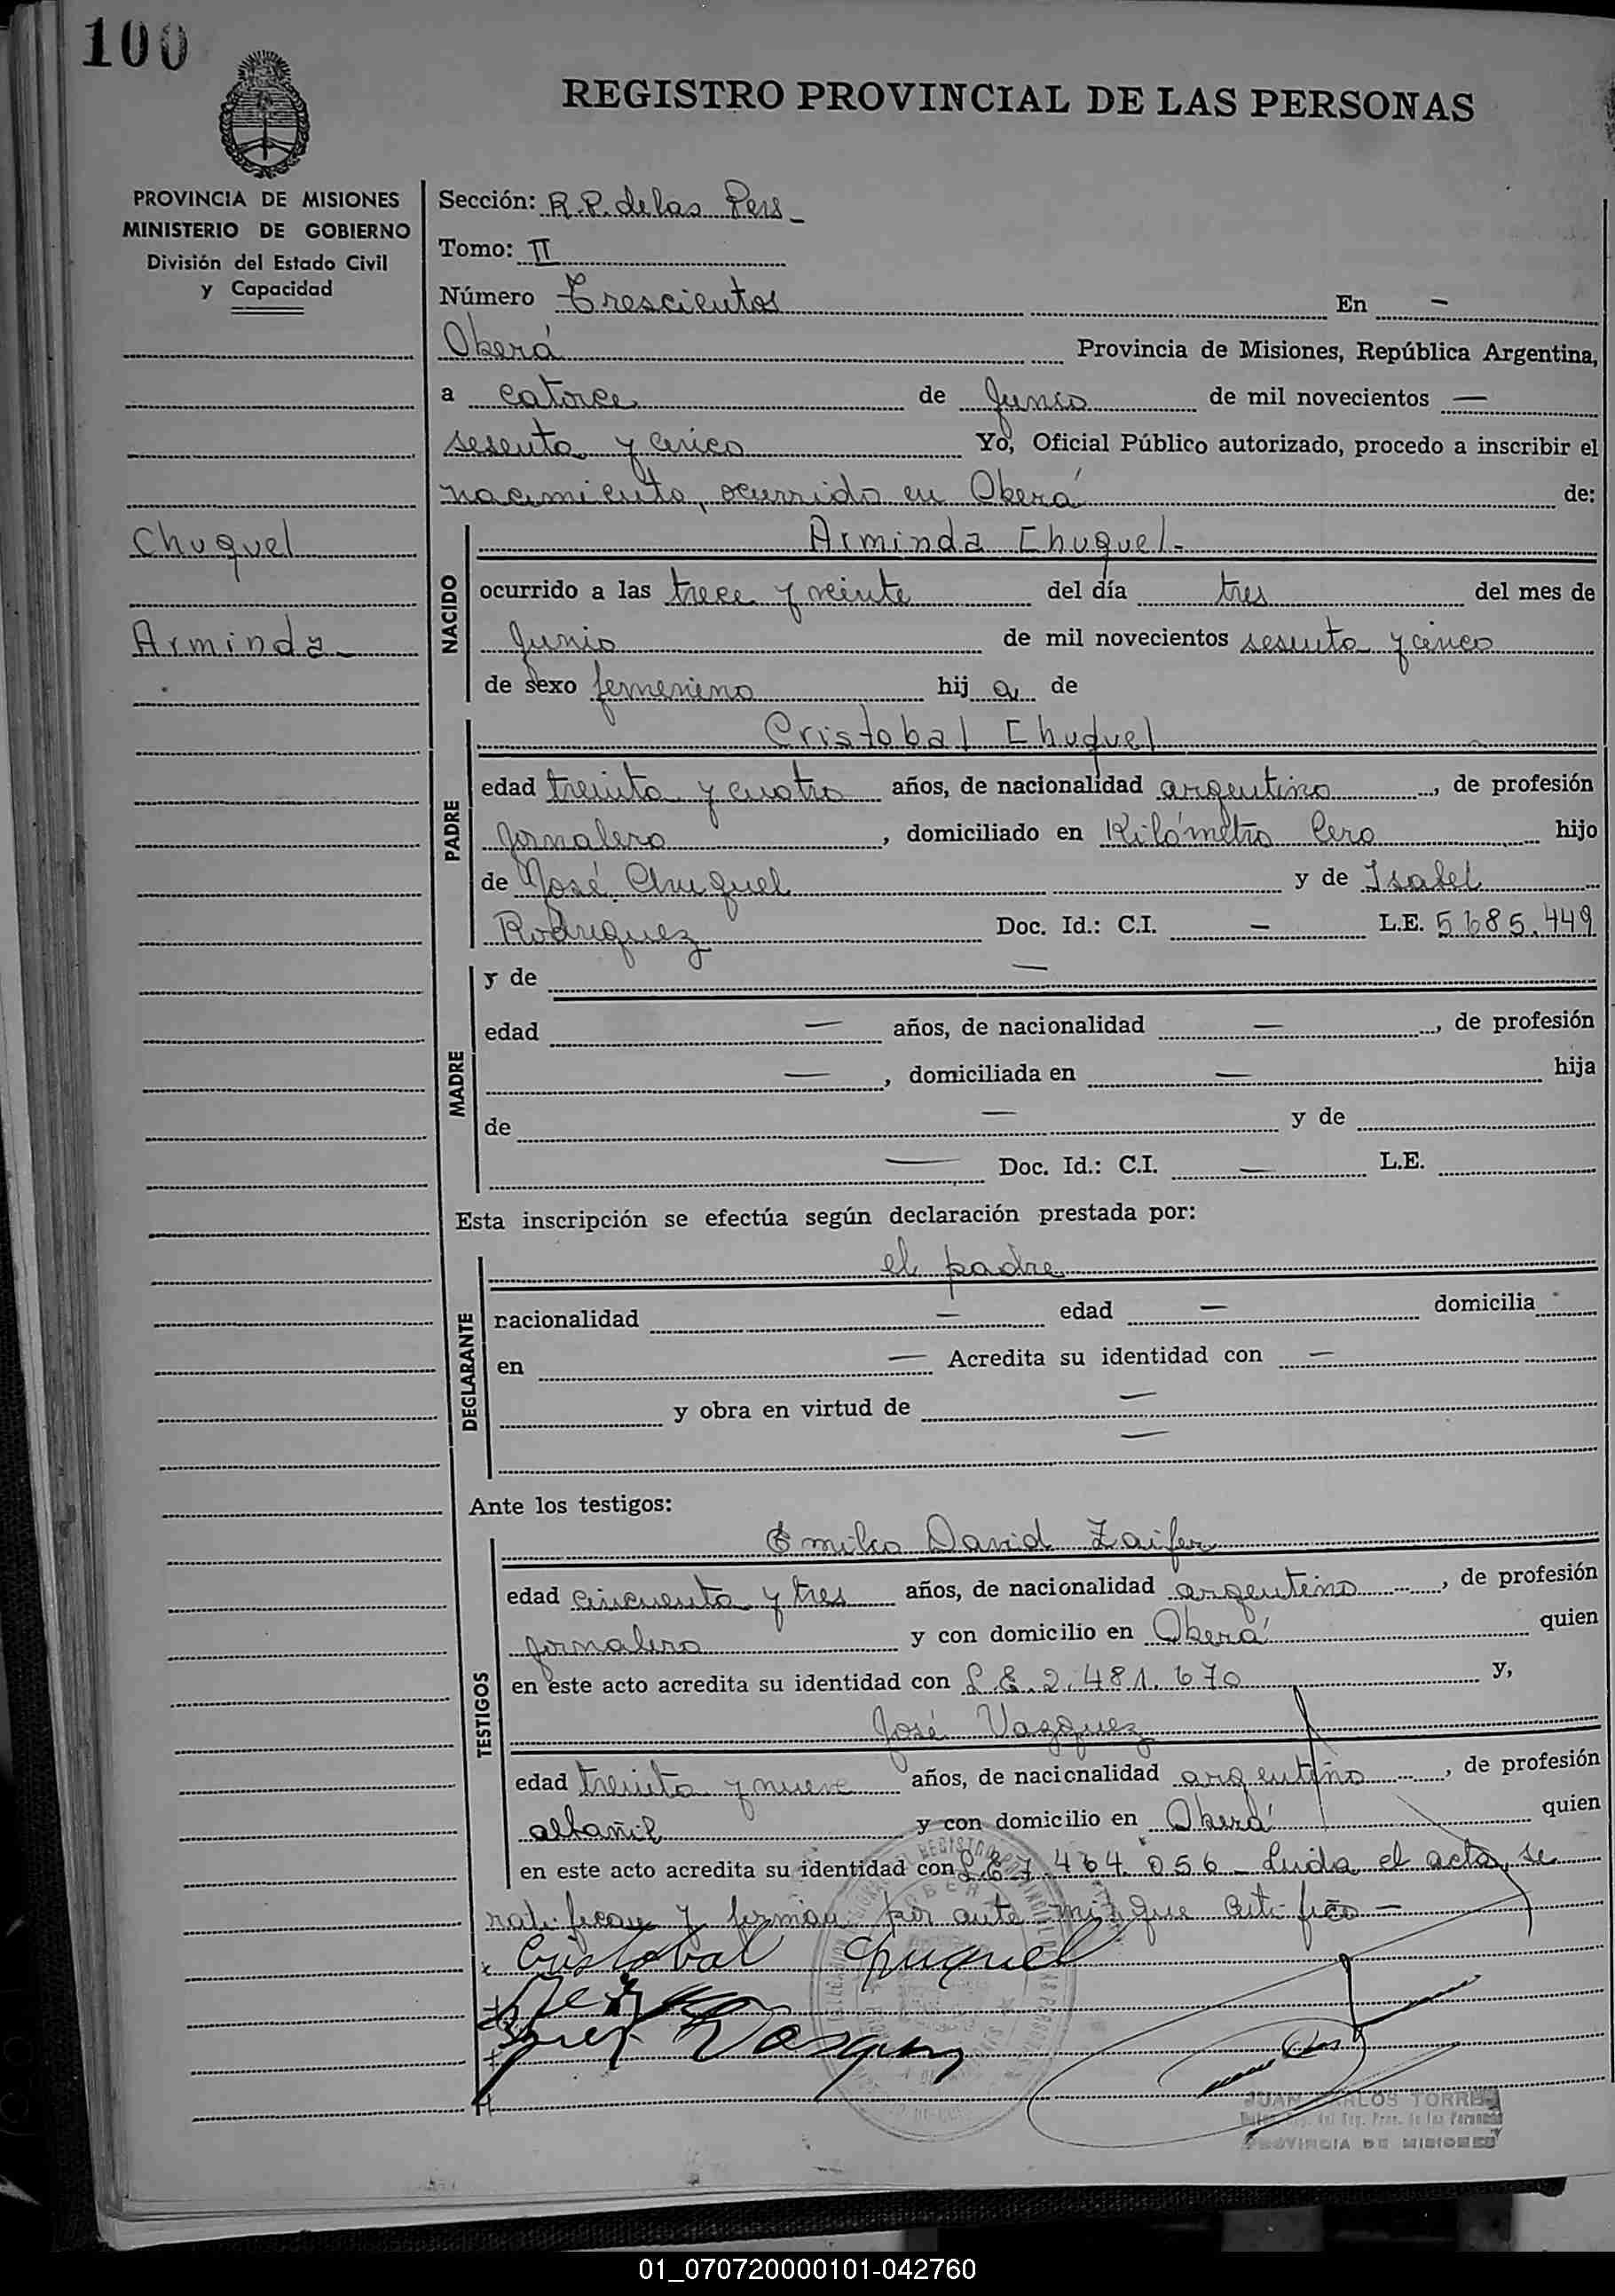 100
REGISTRO PROVINCIAL DE LAS PERSONAS
PROVINCIA DE MISIONES
MINISTERIO DE GOBIERNO
División del Estado Civil
y Capacidad
Sección: R.P. de las Pers -
Tomo: II
Número Trescientos En -
Oberá Provincia de Misiones, República Argentina,
a catorce de Junio de mil novecientos —
sesenta y cinco Yo, Oficial Público autorizado, procedo a inscribir el
nacimiento, ocurrido en Oberá de:
Chuquel
Arminda -
NACIDO
Arminda Chuquel -
ocurrido a las trece y veinte del día tres del mes de
Junio de mil novecientos sesenta y cinco
de sexo femenino hij a de
PADRE
Cristobal Chuquel
edad treinta y cuatro años, de nacionalidad argentino, de profesión
jornalero, domiciliado en Kilómetro Cero hijo
de José Chuquel y de Isabel
Rodriguez Doc. Id.: C.I. — L.E. 5.685.449
MADRE
y de —
edad — años, de nacionalidad —, de profesión
—, domiciliada en — hija
de — y de
— Doc. Id.: C.I. — L.E.
Esta inscripción se efectúa según declaración prestada por:
DECLARANTE
el padre
nacionalidad — edad — domicilia
en — Acredita su identidad con —
y obra en virtud de —
—
Ante los testigos:
TESTIGOS
Emilio David Zaifer
edad cincuenta y tres años, de nacionalidad argentino, de profesión
jornalero y con domicilio en Oberá quien
en este acto acredita su identidad con L.E. 2.481.670 y,
José Vazquez
edad treinta y nueve años, de nacionalidad argentino, de profesión
albañil y con domicilio en Oberá quien
en este acto acredita su identidad con L.E. 7.464.056 - Leida el acta, se
ratifican y firman por ante mi que certifico —
Cristobal Chuquel
JUAN CARLOS TORRES
PROVINCIA DE MISIONES
01_070720000101-042760